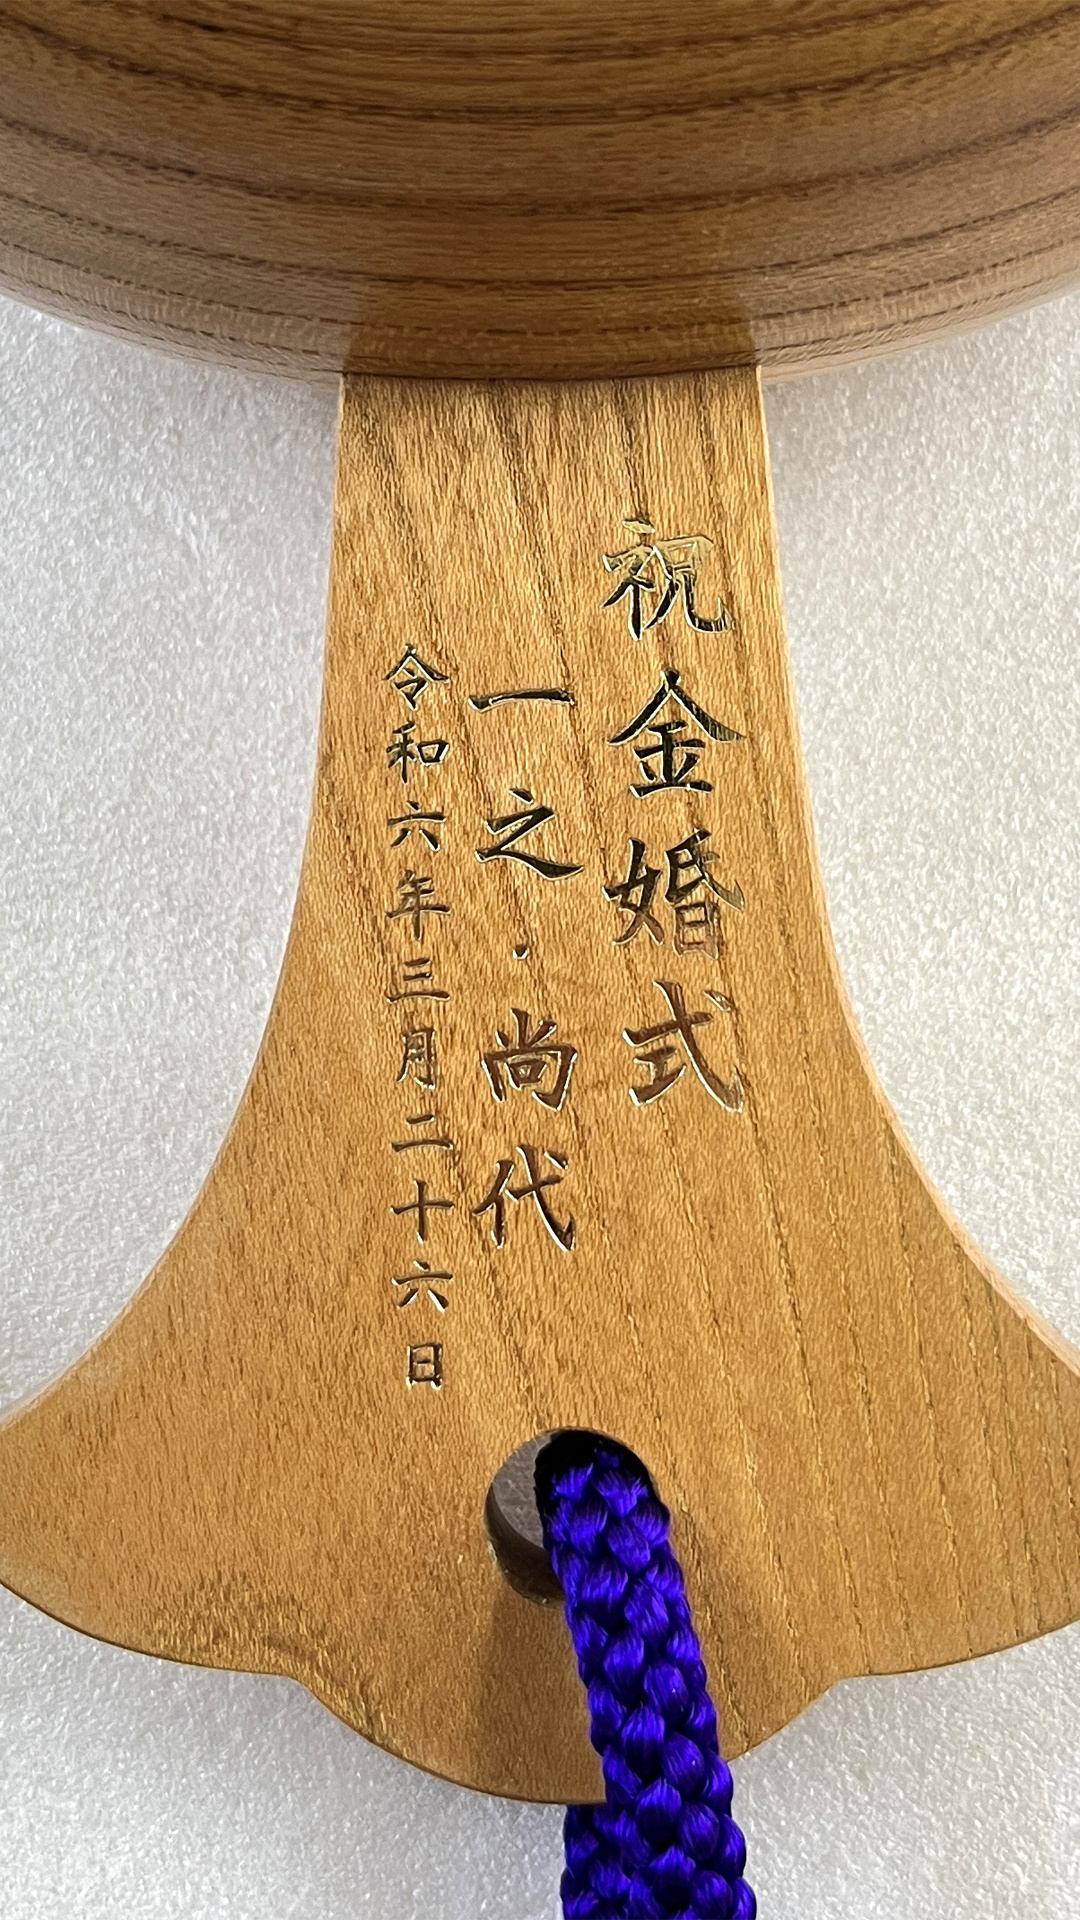 祝金婚式
一之・尚代
令和六年三月二十六日